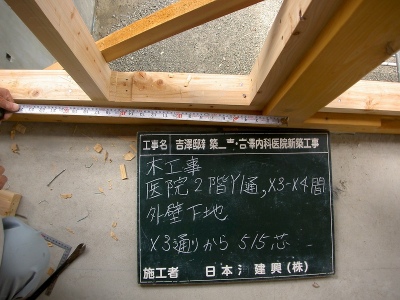 工事名 吉澤邸新築工事・吉澤内科医院新築工事
木工事
医院2階Y1通, X3-X4間
外壁下地
X3通りから515芯
施工者 日本 建興(株)